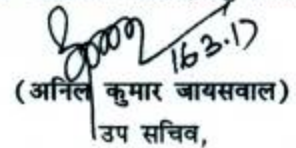 16.3.17
(अनिल कुमार जायसवाल)
उप सचिव,